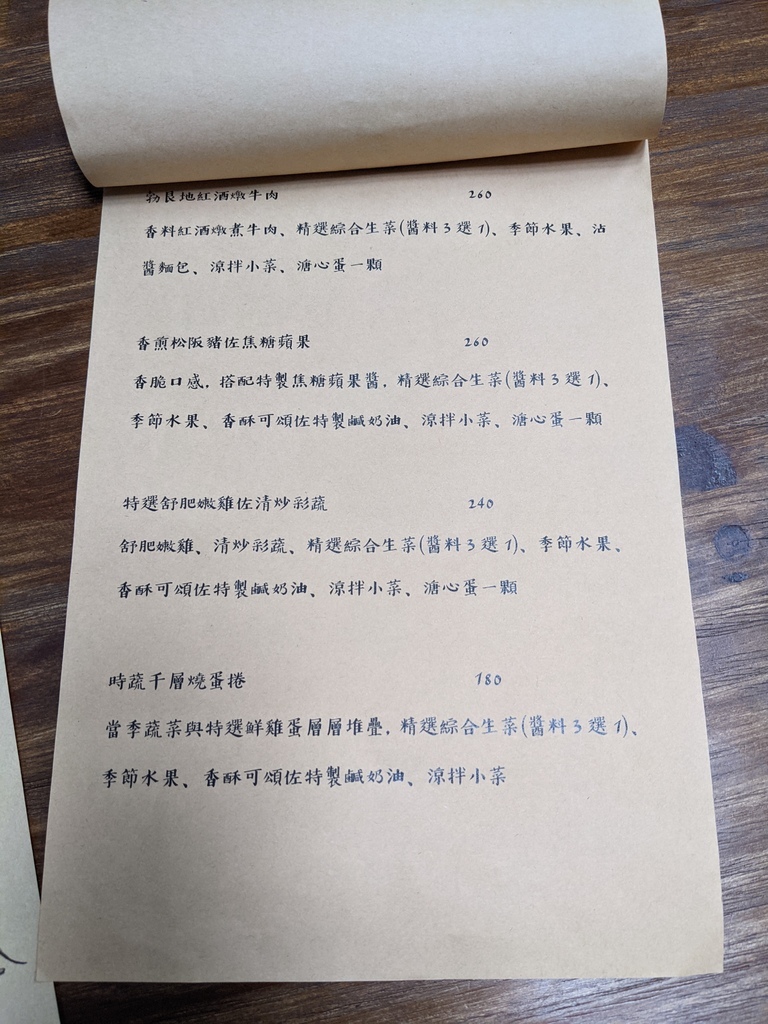 勃艮地紅酒燉牛肉 260
香料紅酒燉煮牛肉、精選綜合生菜(醬料3選1)、季節水果、沾
醬麵包、涼拌小菜、溏心蛋一顆
香煎松阪豬佐焦糖蘋果 260
香脆口感，搭配特製焦糖蘋果醬，精選綜合生菜(醬料3選1)、
季節水果、香酥可頌佐特製鹹奶油、涼拌小菜、溏心蛋一顆
特選舒肥嫩雞佐清炒彩蔬 240
舒肥嫩雞、清炒彩蔬、精選綜合生菜(醬料3選1)、季節水果、
香酥可頌佐特製鹹奶油、涼拌小菜、溏心蛋一顆
時蔬千層燒蛋捲 180
當季蔬菜與特選鮮雞蛋層層堆疊，精選綜合生菜(醬料3選1)、
季節水果、香酥可頌佐特製鹹奶油、涼拌小菜